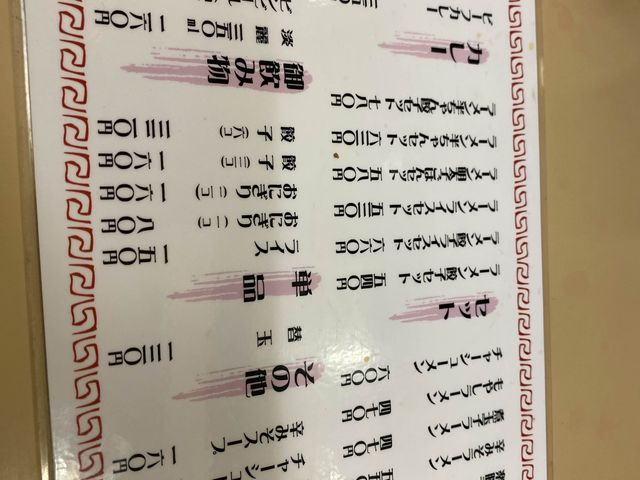 辛みそラーメン
煮玉子ラーメン 四七〇円
もやしラーメン 四七〇円
チャーシューメン 六〇〇円
セット
ラーメン餃子セット 五四〇円
ラーメン餃子ライスセット 六六〇円
ラーメンライスセット 五三〇円
ラーメン ごはんセット 五八〇円
ラーメン半ちゃんセット 六三〇円
ラーメン半ちゃん餃子セット 七八〇円
カレー
ビーフカレー
チャーシュー
辛みそスープ 一六〇円
その他
替玉 一三〇円
単品
ライス 一五〇円
おにぎり(一コ) 八〇円
おにぎり(二コ) 一六〇円
餃子(三コ) 一六〇円
餃子(六コ) 三二〇円
御飲み物
淡麗 三五〇ml 一六〇円